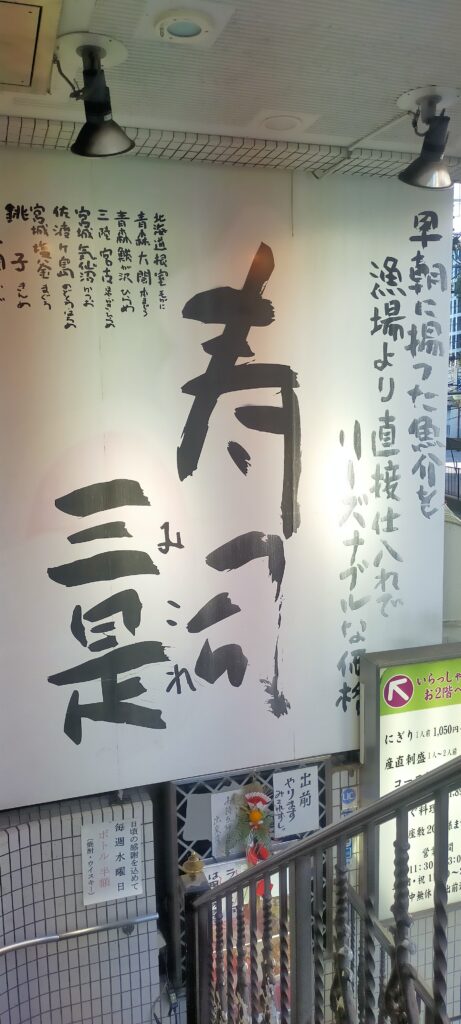 早朝に揚った魚介を
漁場より直接仕入れで
リーズナブルな価格
寿司
三是
みこれ
北海道根室
青森大間
青森鰺ヶ沢ひらめ
三陸宮古
宮城気仙沼かつお
佐渡ヶ島
宮城塩釜まぐろ
銚子きんめ
いらっしゃ
お2階へ
にぎり1人前1,050円
産直刺盛1人〜2人前
出前
やります
みこれずし。
日頃の感謝を込めて
毎週水曜日
ボトル半額
(焼酎・ウイスキー)